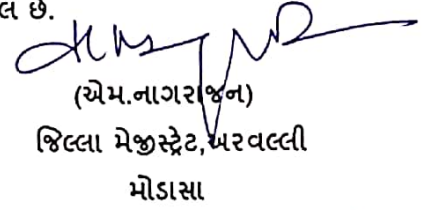 લ છે.
(એમ.નાગરાજન)
જિલ્લા મેજીસ્ટ્રેટ,અરવલ્લી
મોડાસા